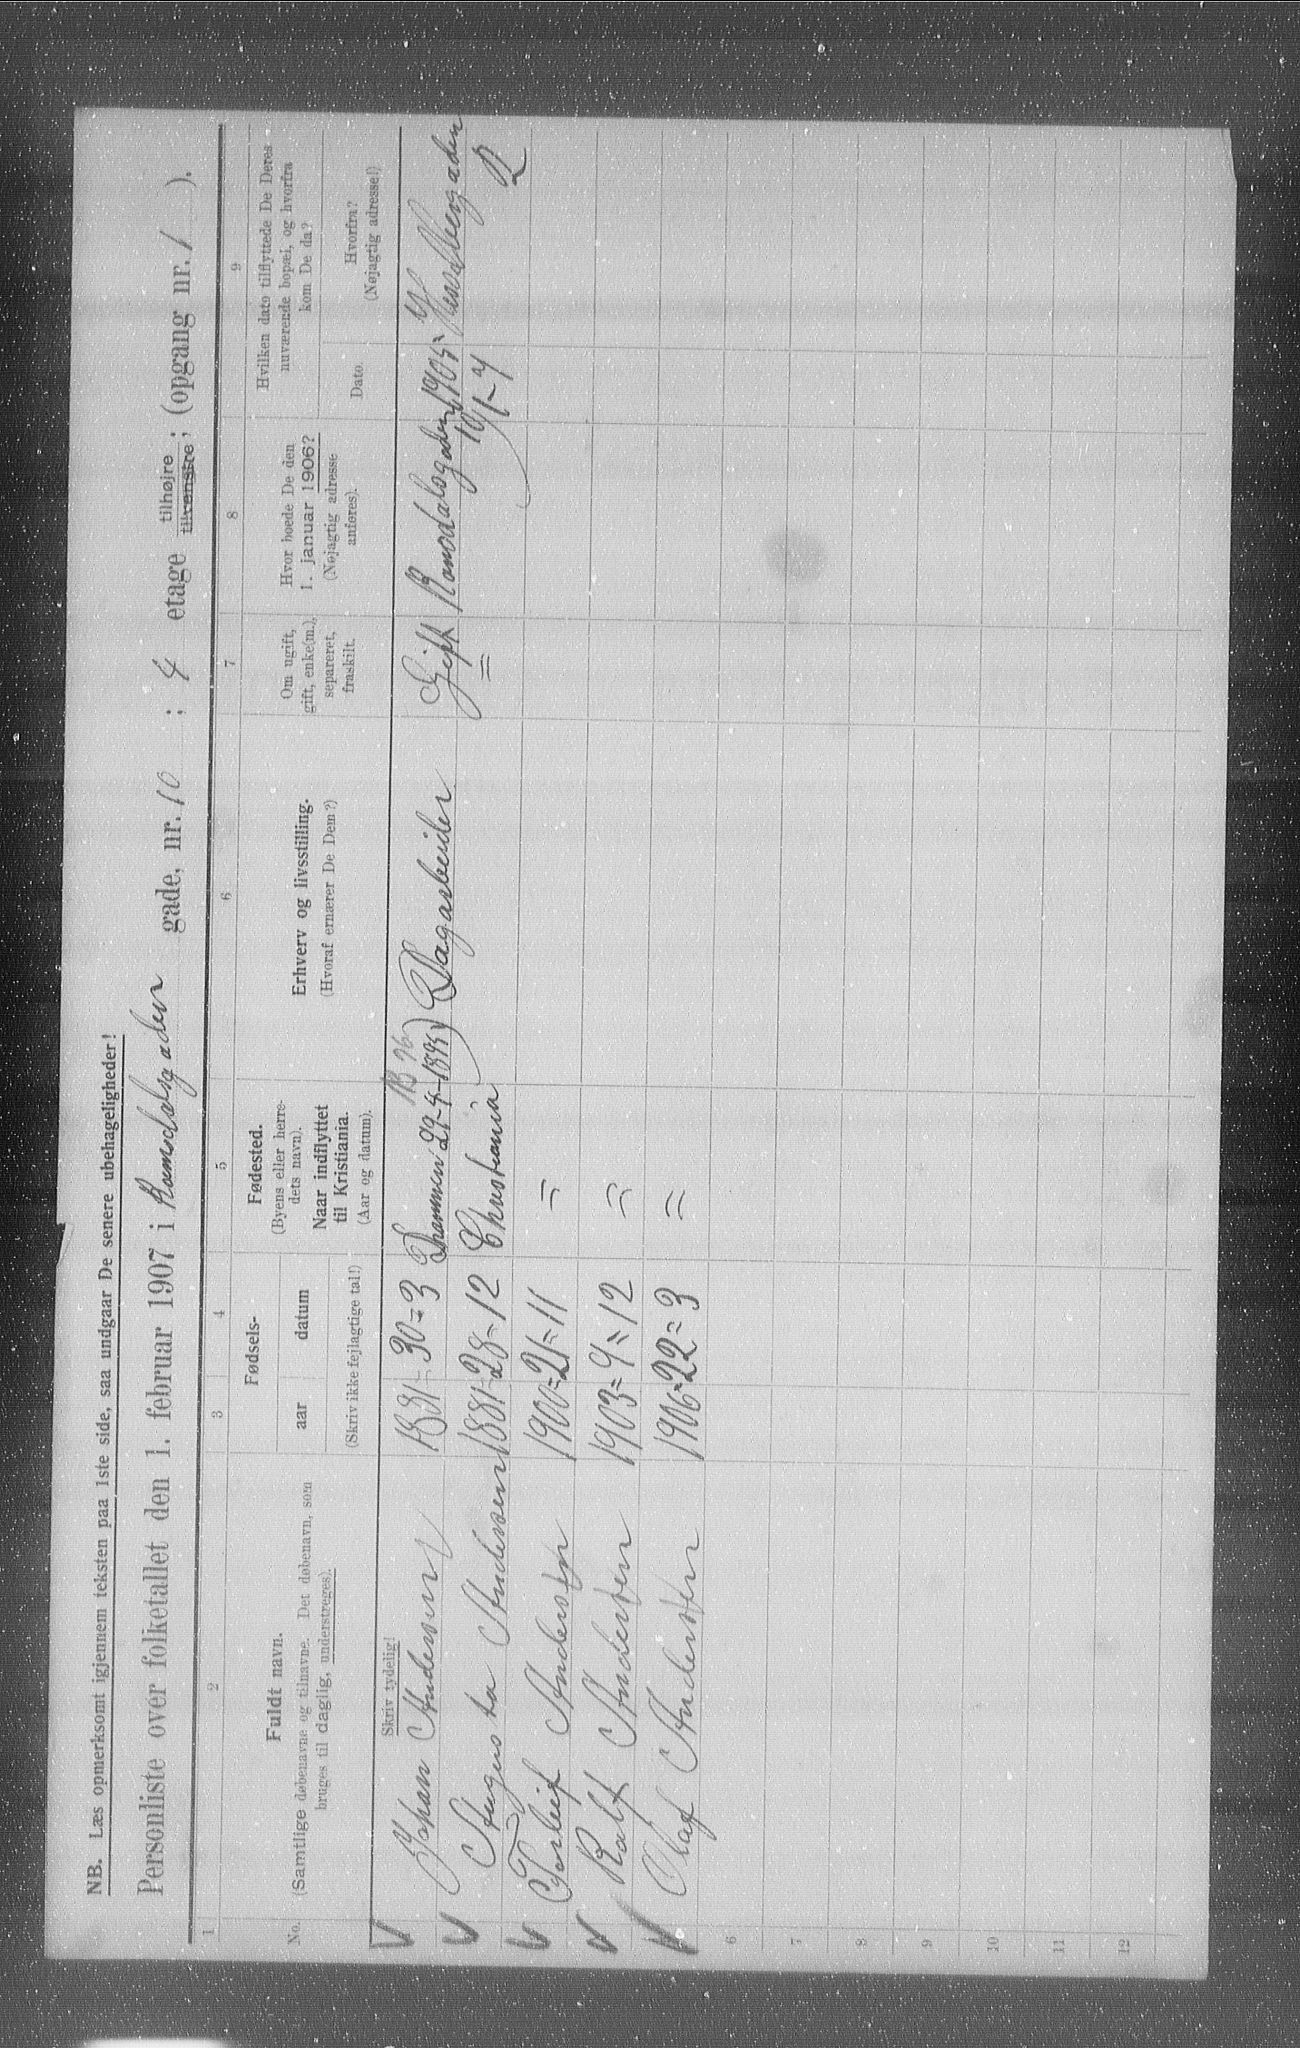 NB. Læs opmerksomt igjennem teksten paa 1ste side, saa undgaar De senere ubehageligheder!
Personliste over folketallet den 1. februar 1907 i Romsdalsgaden gade, nr. 10 ; 4 etage tilhøjre tilvenstre ; (opgang nr. 1 ).
1 2 3 4 5 6 7 8 9
No.
Fuldt navn.
(Samtlige døbenavne og tilnavne. Det døbenavn, som
bruges til daglig, understreges).
Skriv tydelig!
Fødsels-
aar datum
(Skriv ikke fejlagtige tal!)
Fødested.
(Byens eller herre-
dets navn).
Naar indflyttet
til Kristiania.
(Aar og datum).
Erhverv og livsstilling.
(Hvoraf ernærer De Dem?)
Om ugift,
gift, enke(m.),
separeret,
fraskilt.
Hvor boede De den
1. januar 1906?
(Nøjagtig adresse
anføres).
Hvilken dato tilflyttede De Deres
nuværende bopæl, og hvorfra
kom De da?
Dato.
Hvorfra?
(Nøjagtig adresse!)
V Johan Andersen 1881 = 30 = 3 Drammen 29-4-1895 Dagarbeider Gift Romsdalsgaden 1905 10/1-4
V Augusta Andersen 1881 = 28 = 12 Christiania =
V Torleif Andersen 1900 = 21 = 11 =
V Ralf Andersen 1903 = 4 = 12 =
V Olaf Andersen 1906 = 22 = 3 =
6
7
8
9
10
11
12